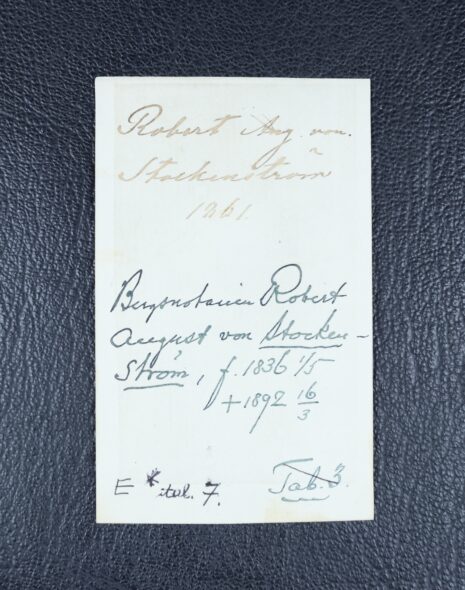 Robert Aug. von.
Stockenström
1861
Bergsnotarien Robert
August von Stocken-
Ström, f. 1836 1/5
+ 1892 16/3
E * 7.
Tab. 3.